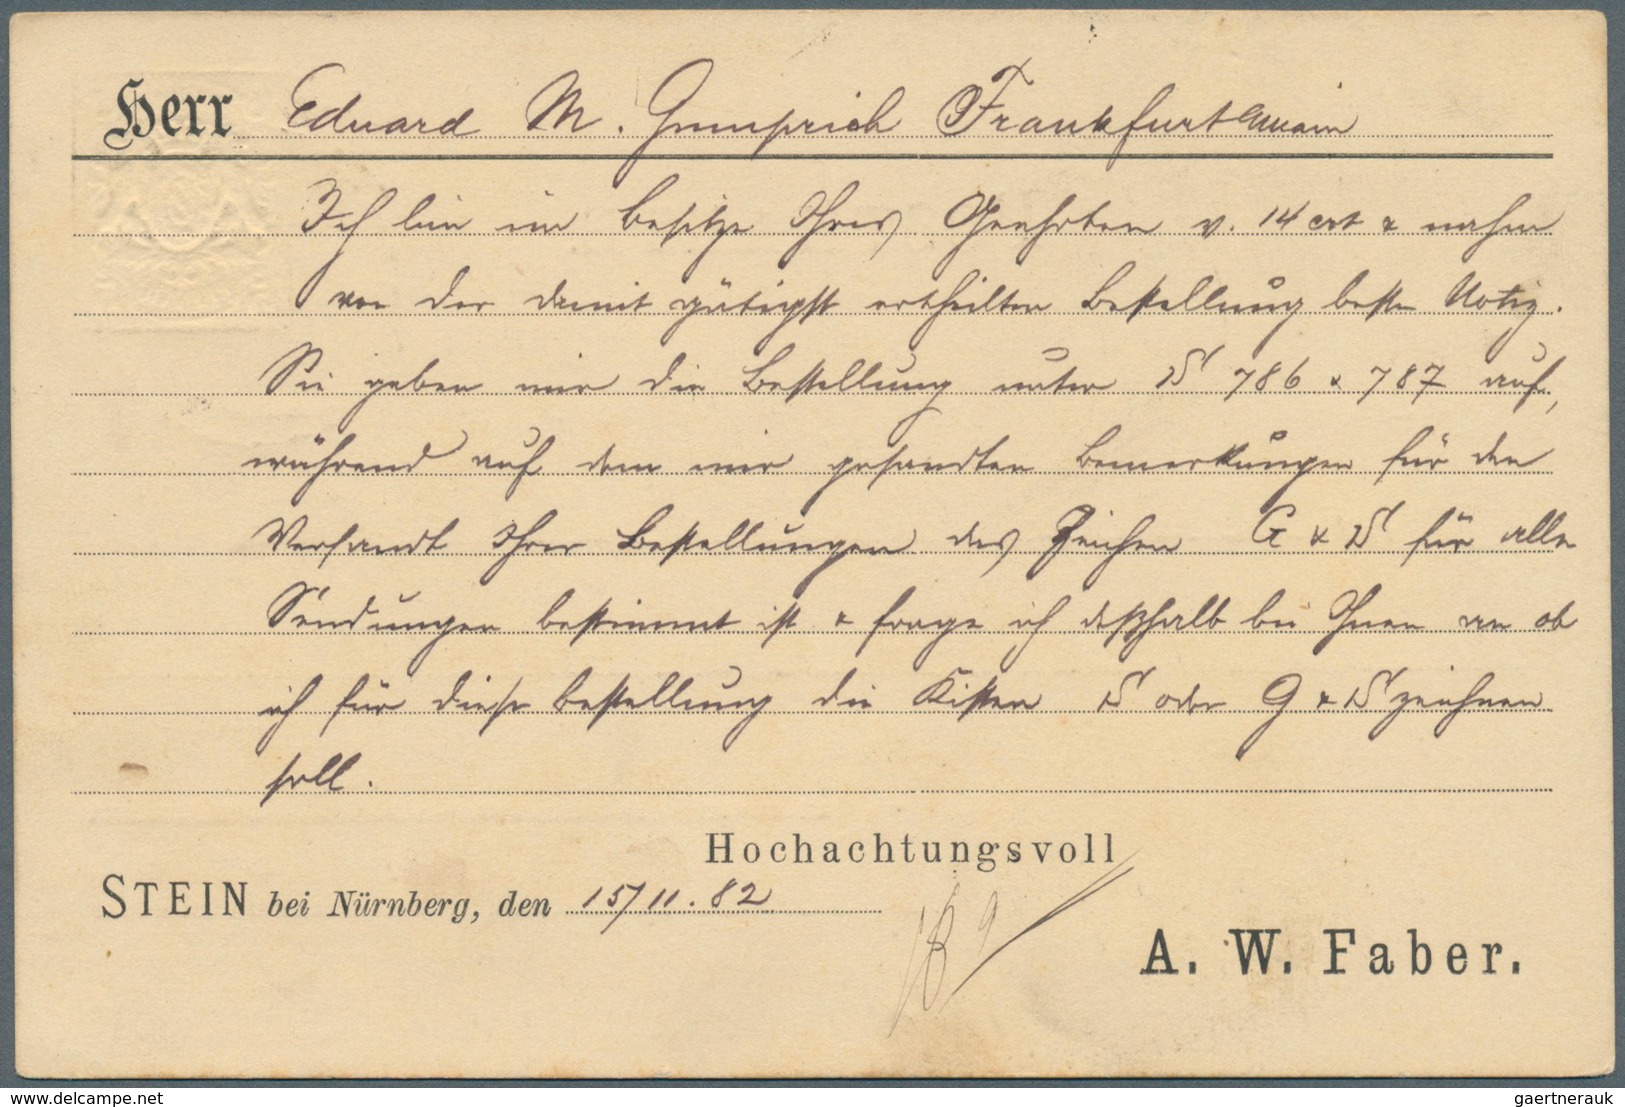 Herr Eduard M. Gumprich Frankfurt a/main
Ich bin im Besitze Ihres Geehrten v. 14 crt & nahm
von der damit gütigst ertheilten Bestellung beste Notiz.
Sie geben mir die Bestellung unter S 786 & 787 auf,
während auf dem mir gesandten Bemerkungen für den
Versandt Ihrer Bestellungen das Zeichen G & S für alle
Sendungen bestimmt ist & frage ich deßhalb bei Ihnen an ob
ich für diese Bestellung die Kisten S oder G & S zeichnen
soll.
Hochachtungsvoll
STEIN bei Nürnberg, den 15/11. 82
A. W. Faber.
delcampe.net
gaertnerauk